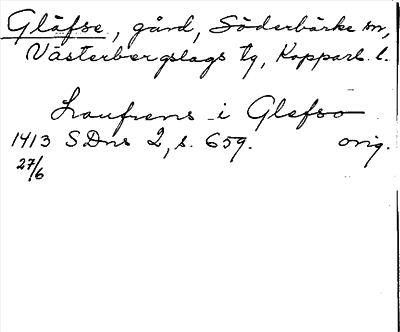 Gläfse, gård, Söderbärke sn,
Västerbergslags tg, Kopparb. l.
Laufrens i Glafso
1413 SDns 2, s. 659. orig.
27/6